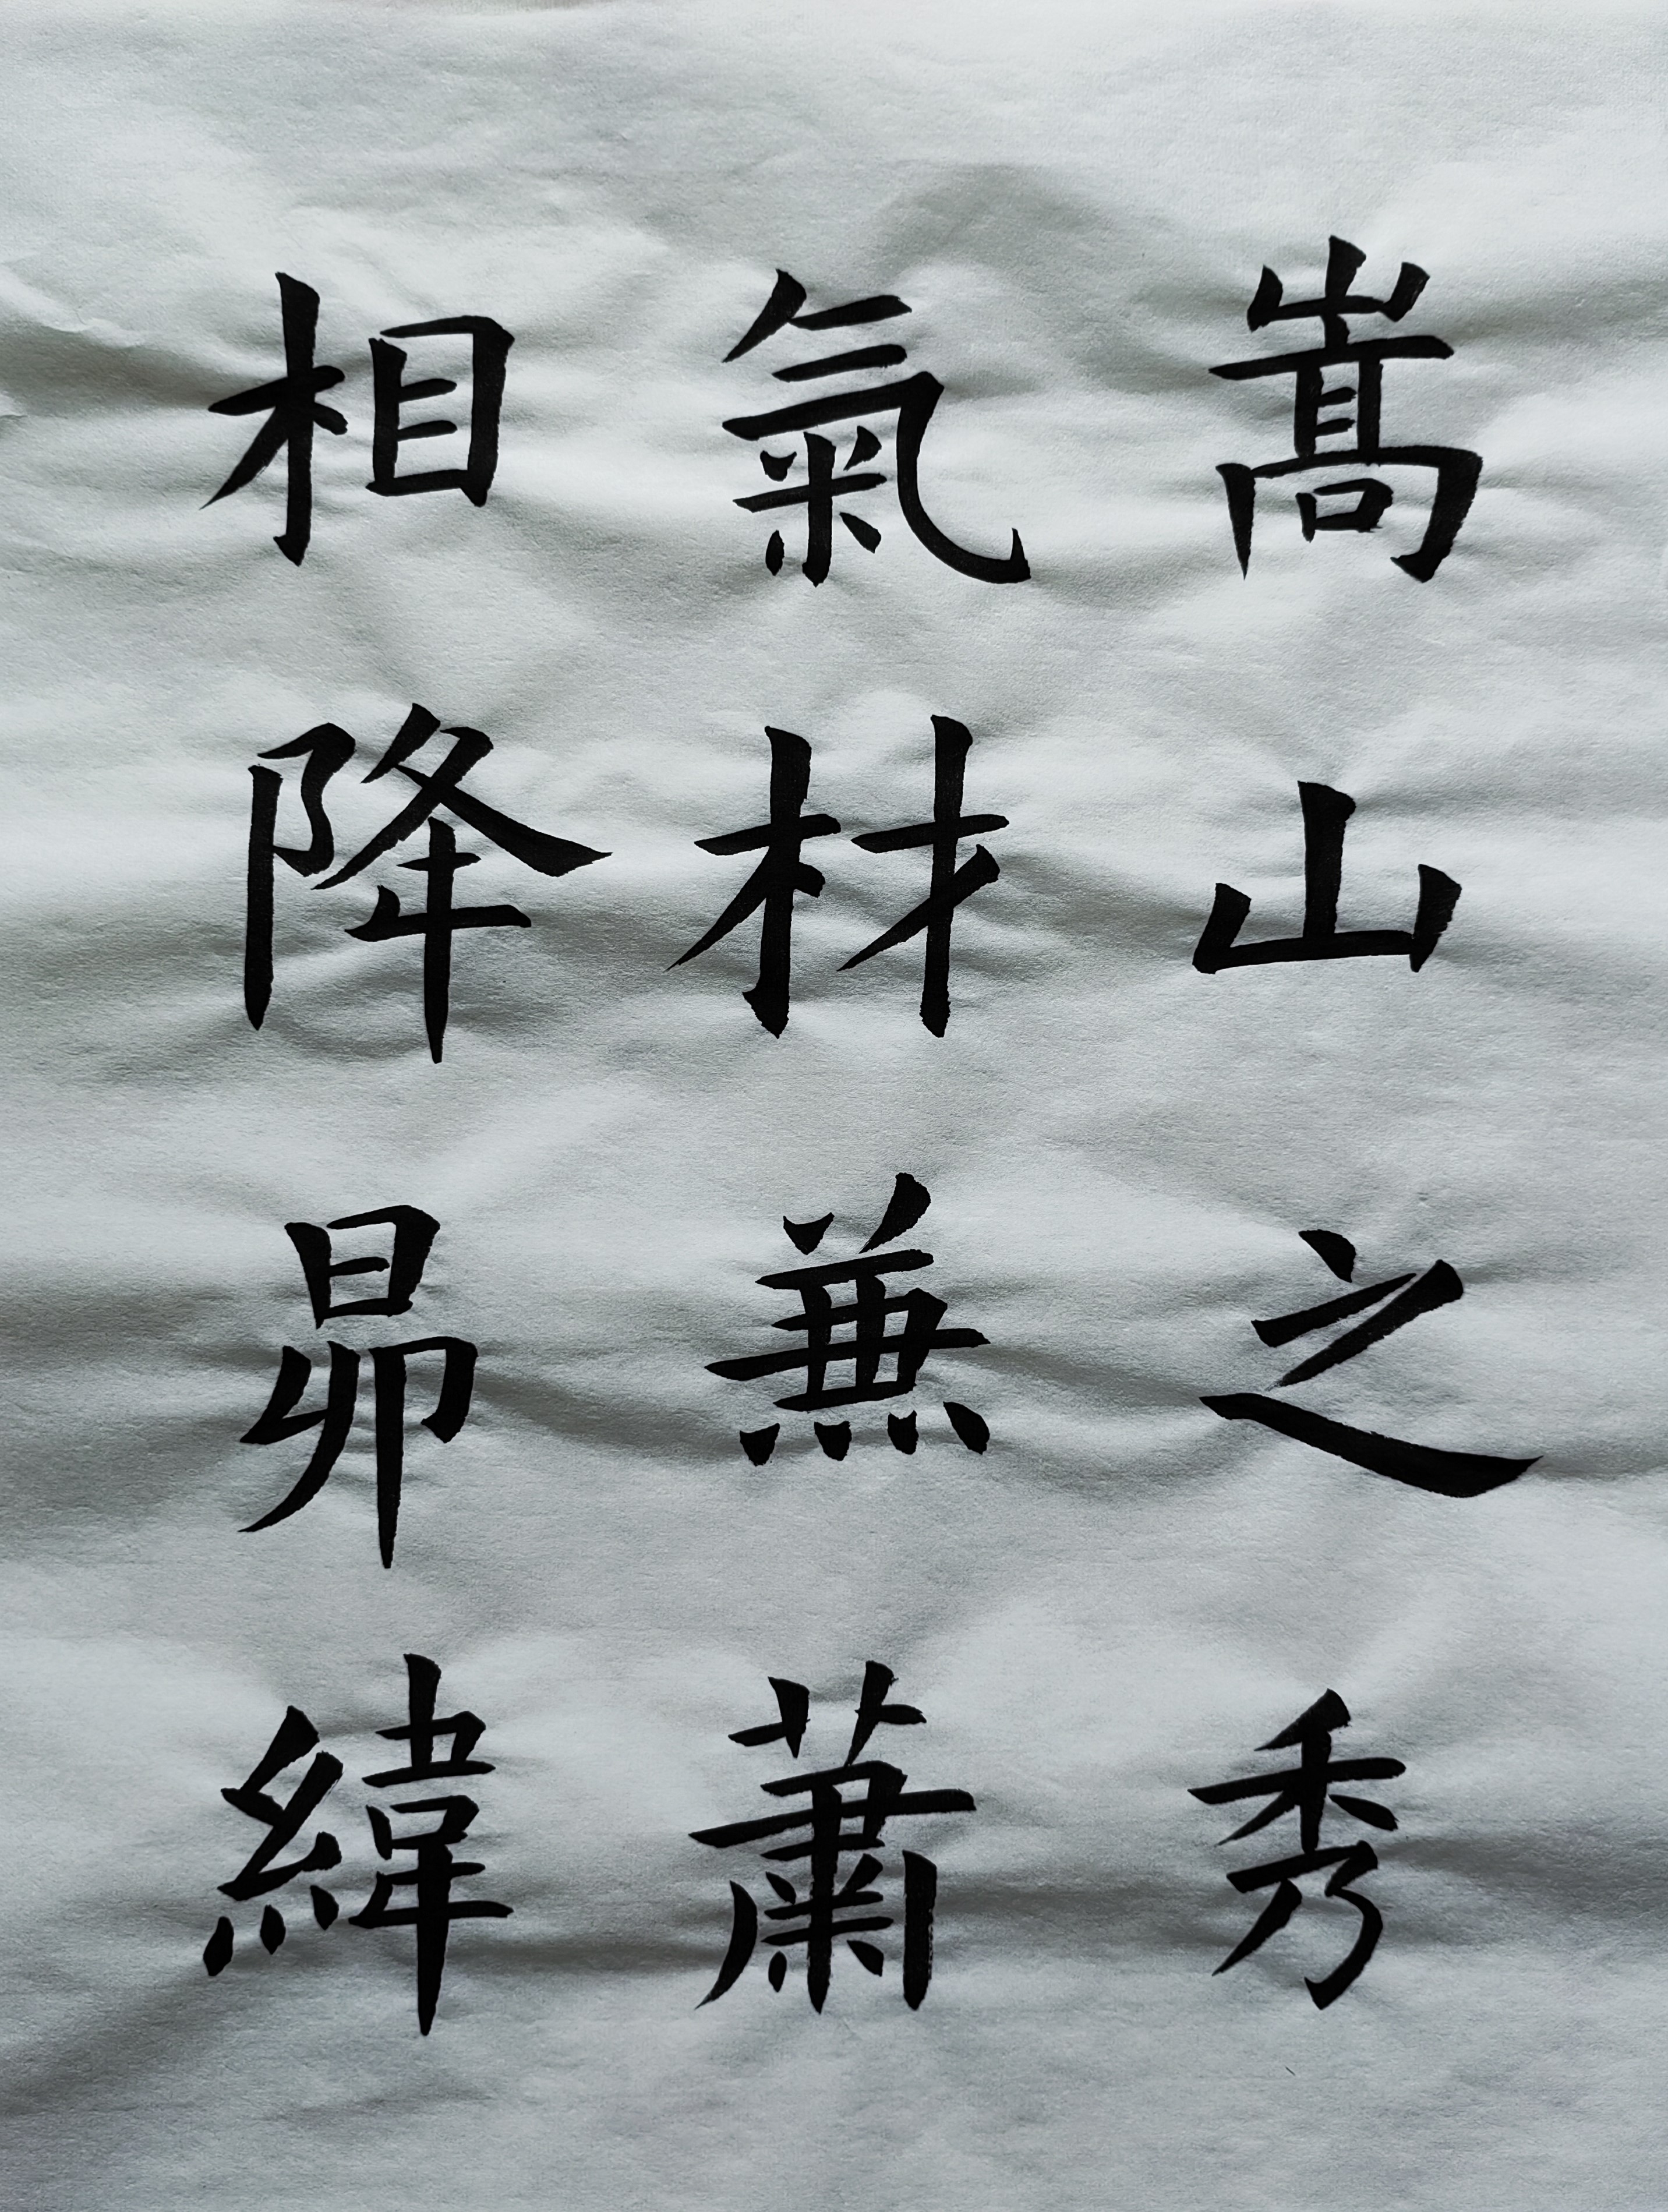 嵩山之秀
氣材兼蕭
相降昴緯